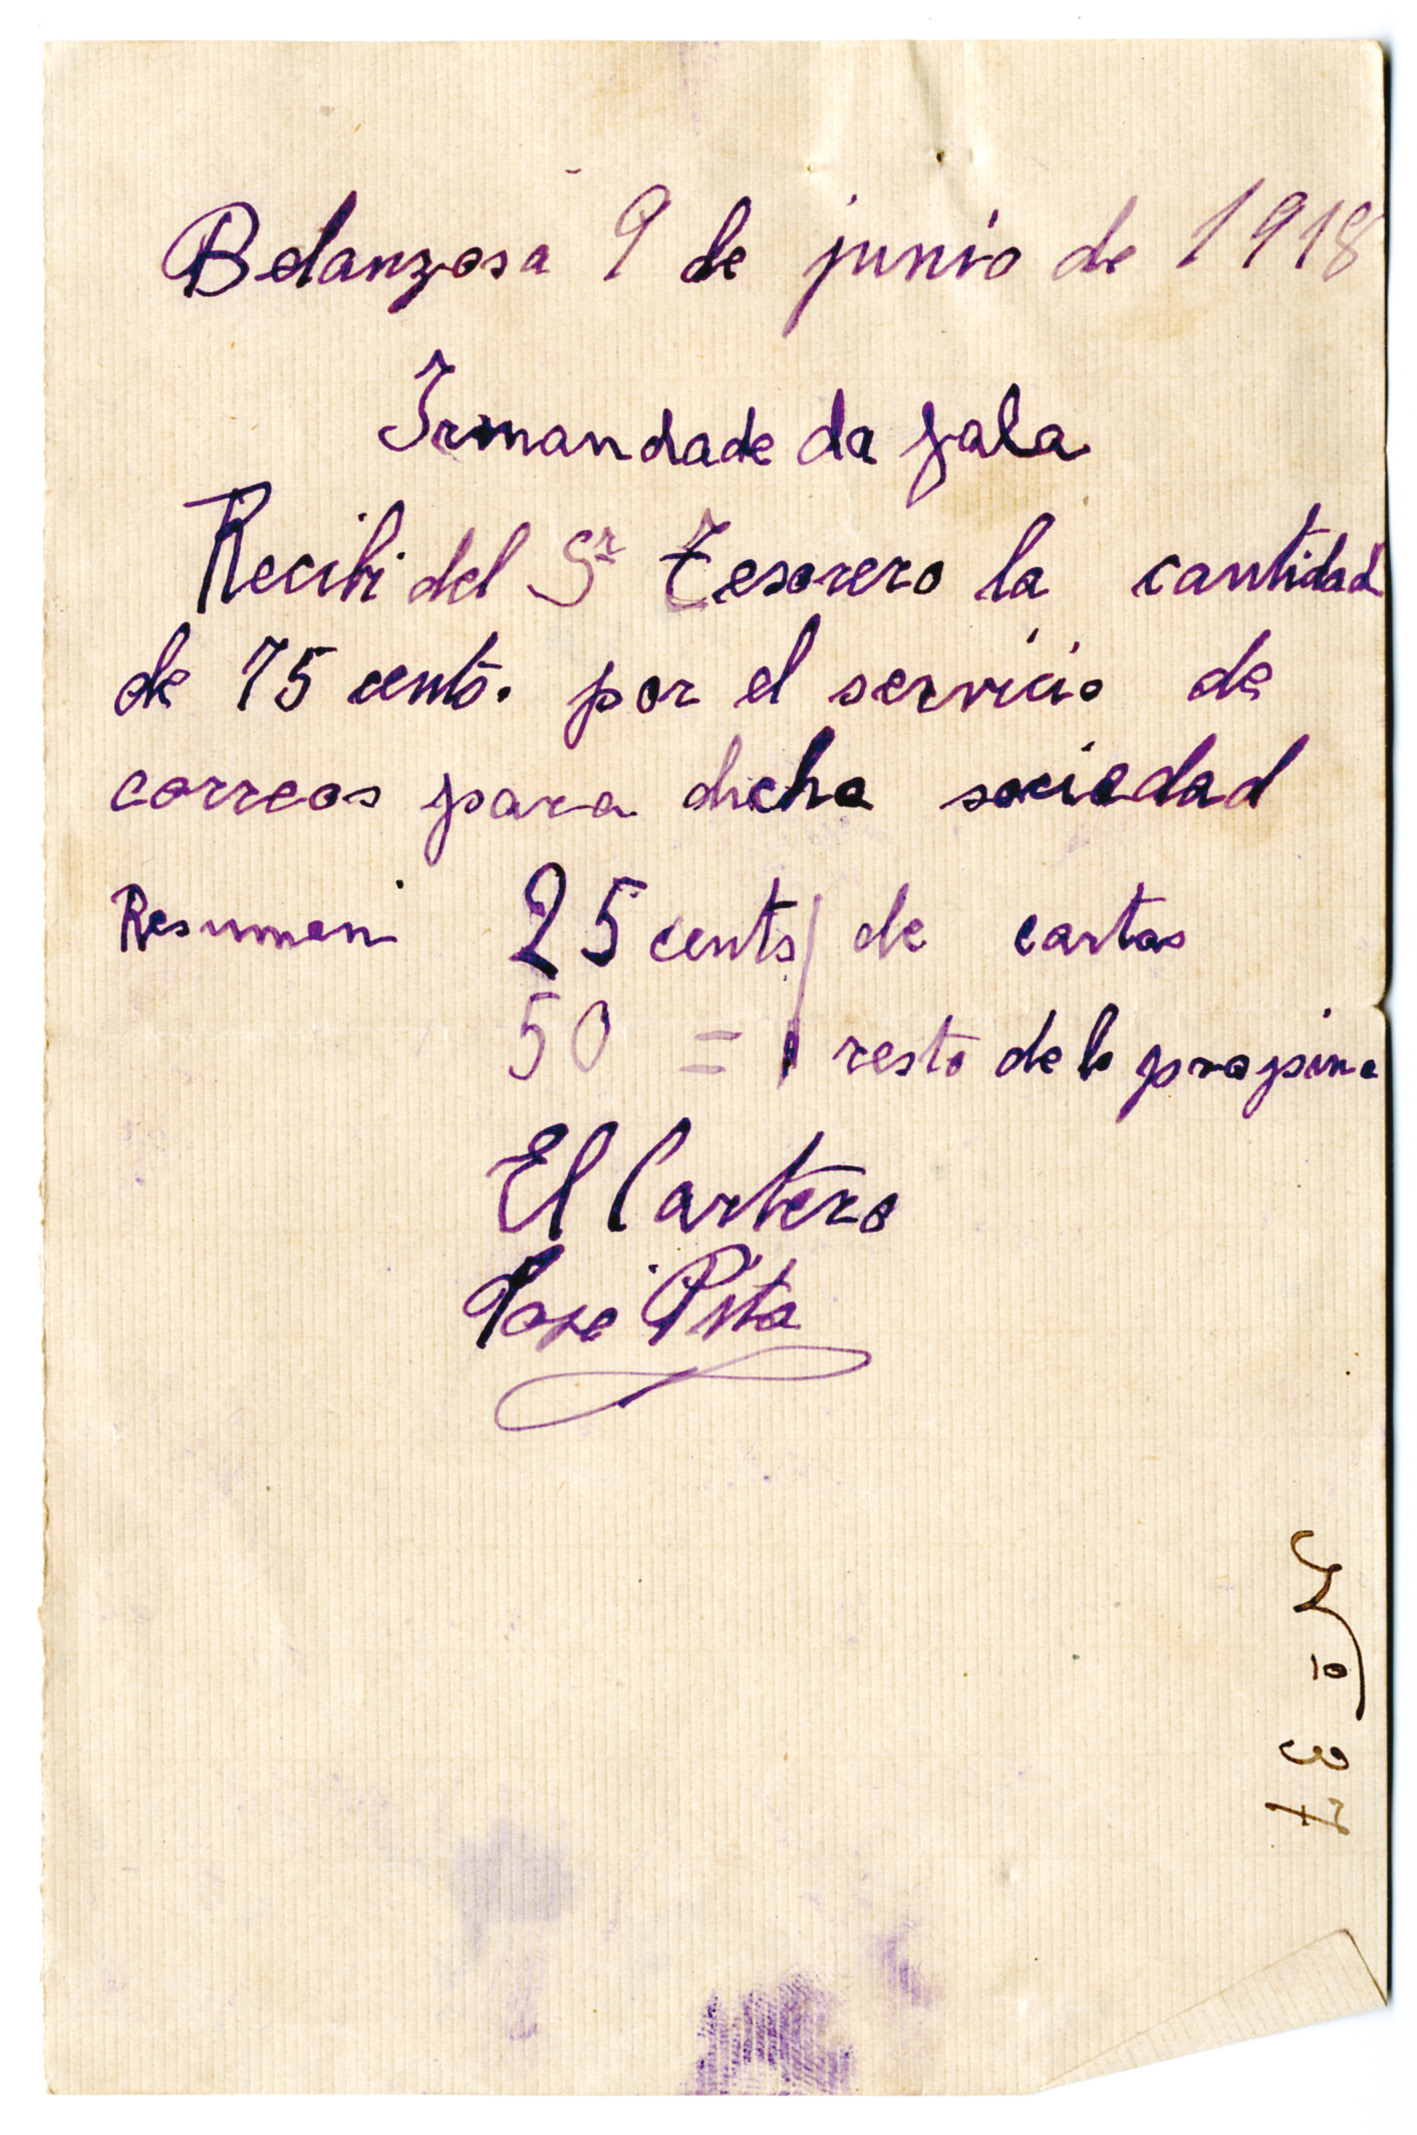 Betanzosa 9 de junio de 1918
Irmandade da fala
Recibi del Sr Tesorero la cantidad
de 75 cents. por el servicio de
correos para dicha sociedad
Resumen 25 cents/ de cartas
50 = / resto de la propina
El Cartero
Jose Pita
Nº 37